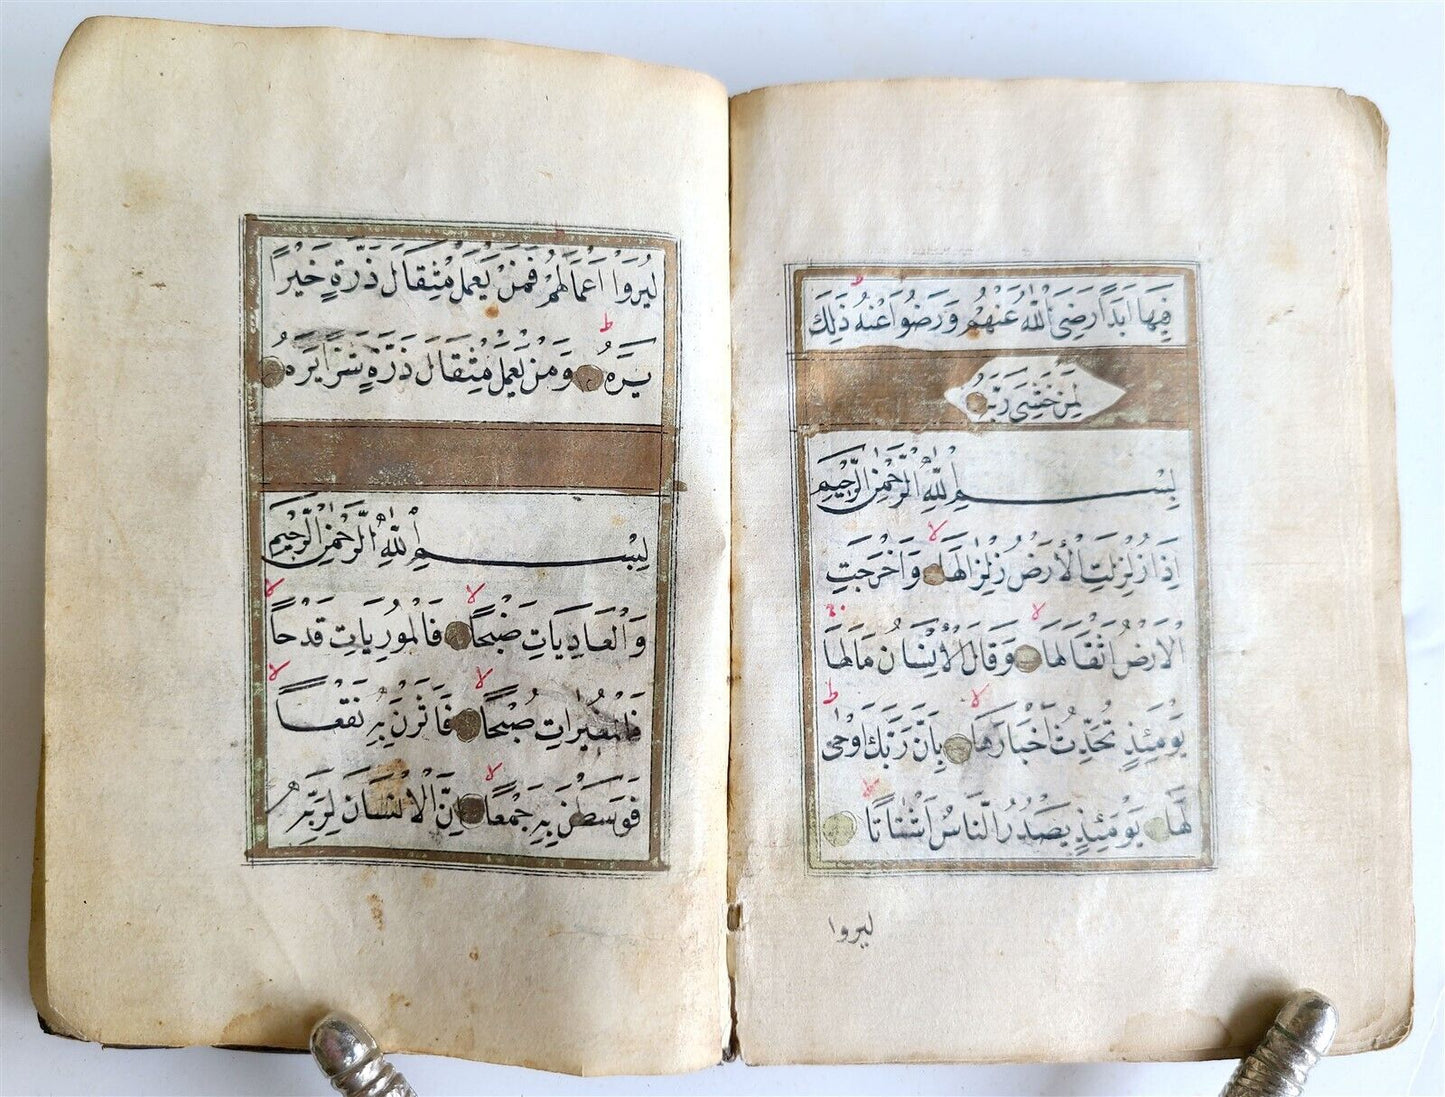 فِيهَا اَبَدًا رَضِىَ اللّٰهُ عَنْهُمْ وَرَضُوا عَنْهُ ذٰلِكَ
لِمَنْ خَشِىَ رَبَّهُ
بِسْمِ اللّٰهِ الرَّحْمٰنِ الرَّحِيمِ
اِذَا زُلْزِلَتِ الْاَرْضُ زِلْزَالَهَا وَاَخْرَجَتِ
الْاَرْضُ اَثْقَالَهَا وَقَالَ الْاِنْسَانُ مَالَهَا
يَوْمَئِذٍ تُحَدِّثُ اَخْبَارَهَا بِاَنَّ رَبَّكَ اَوْحٰى
لَهَا يَوْمَئِذٍ يَصْدُرُ النَّاسُ اَشْتَاتًا
ليروا
لِيُرَوْا اَعْمَالَهُمْ فَمَنْ يَعْمَلْ مِثْقَالَ ذَرَّةٍ خَيْرًا
يَرَهُ وَمَنْ يَعْمَلْ مِثْقَالَ ذَرَّةٍ شَرًّا يَرَهُ
بِسْمِ اللّٰهِ الرَّحْمٰنِ الرَّحِيمِ
وَالْعَادِيَاتِ ضَبْحًا فَالْمُورِيَاتِ قَدْحًا
فَالْمُغِيرَاتِ صُبْحًا فَاَثَرْنَ بِهِ نَقْعًا
فَوَسَطْنَ بِهِ جَمْعًا اِنَّ الْاِنْسَانَ لِرَبِّهِ